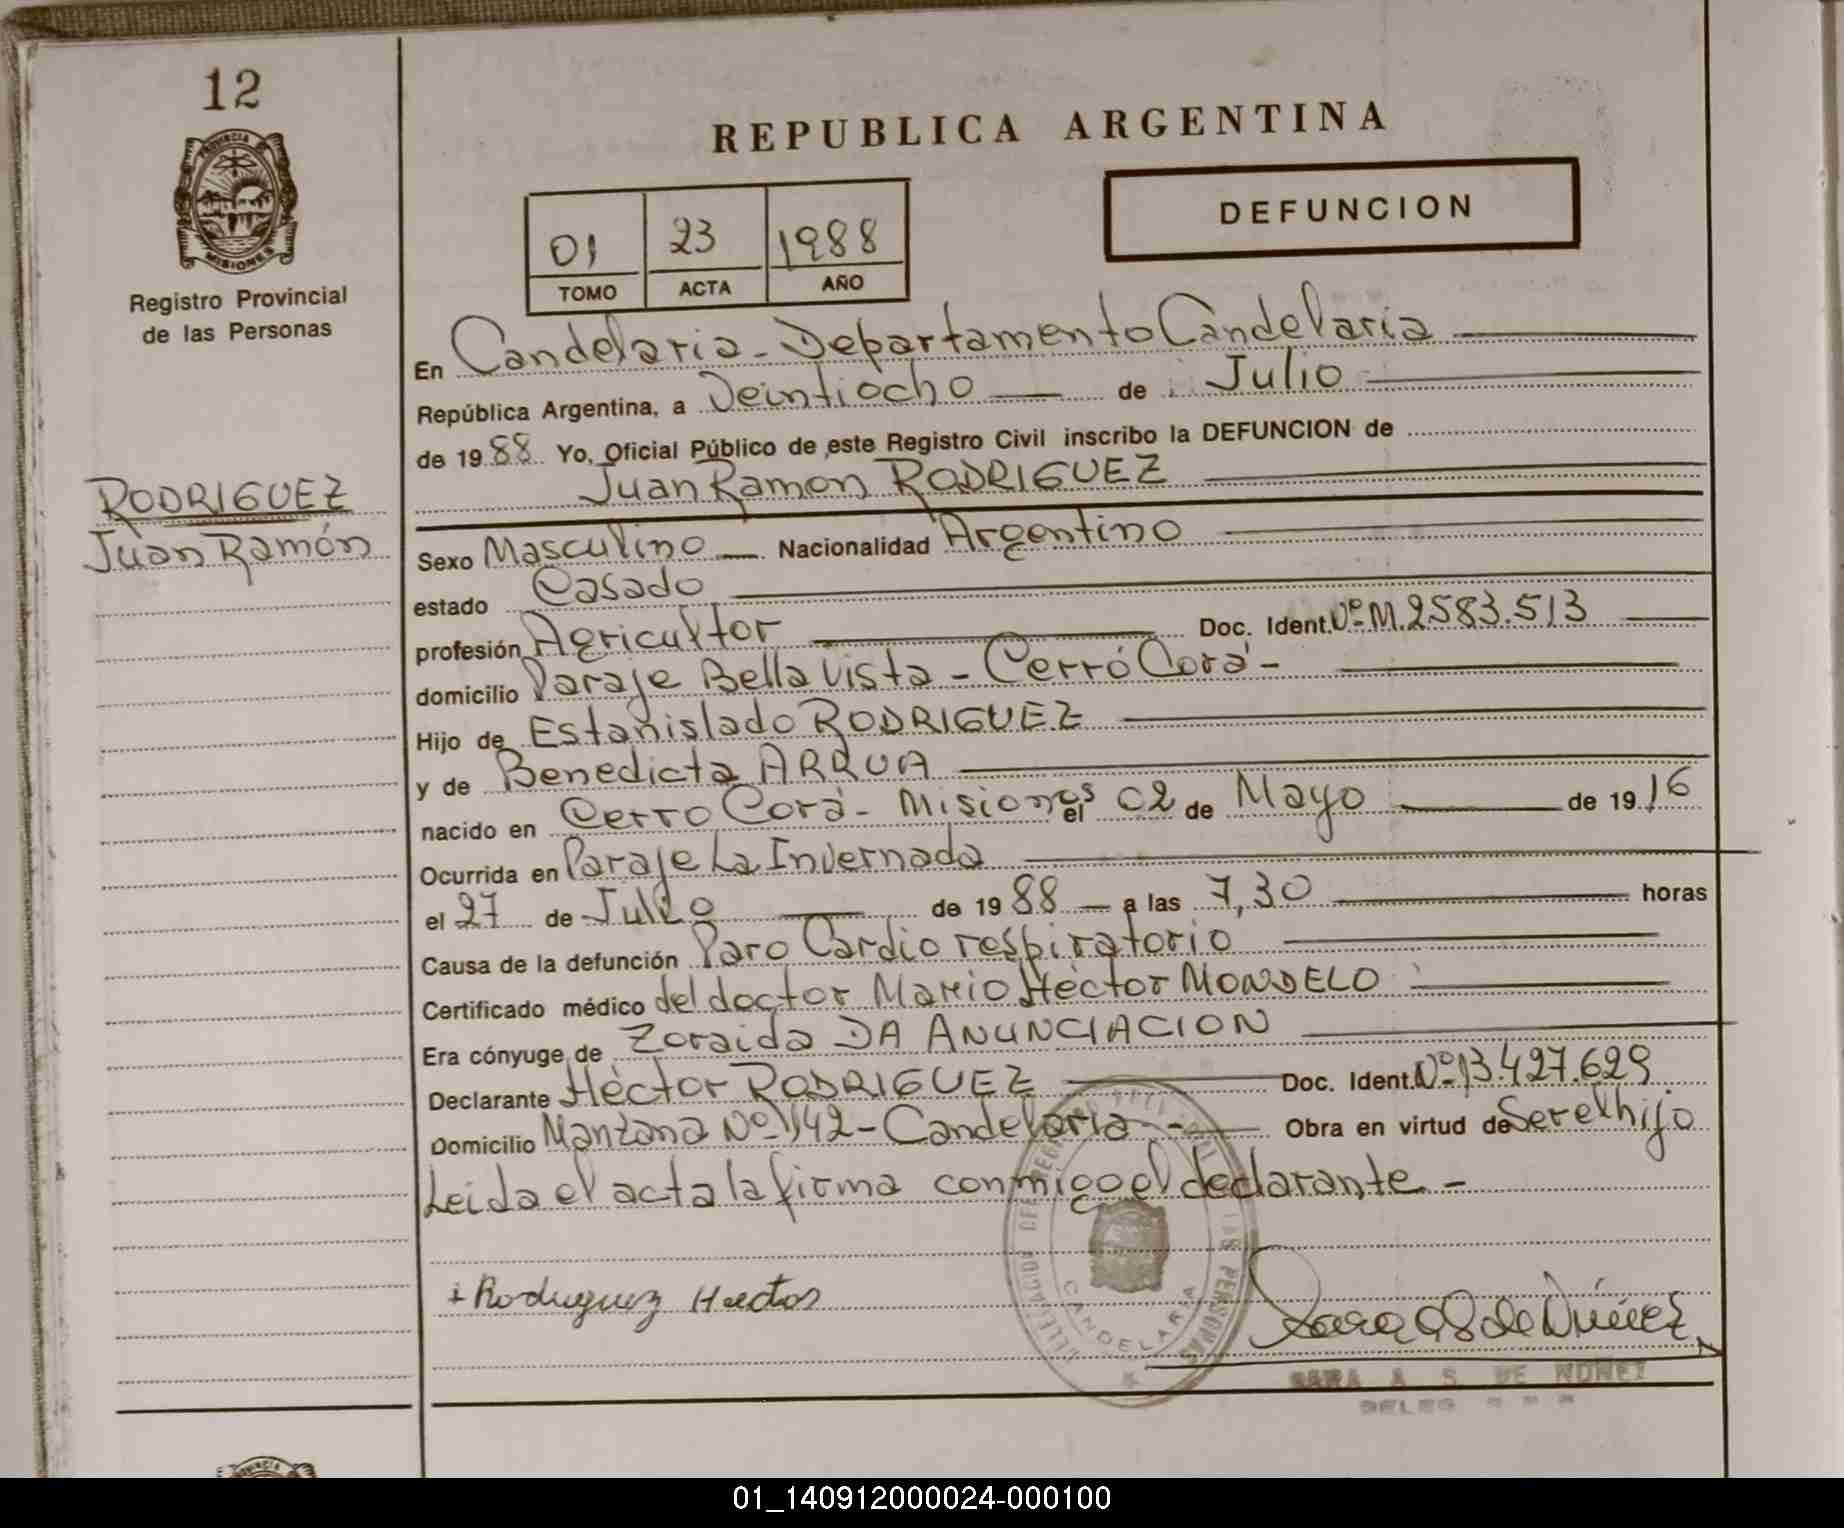 12
PROVINCIA
MISIONES
Registro Provincial
de las Personas
RODRIGUEZ
Juan Ramón
REPUBLICA ARGENTINA
DEFUNCION
01 23 1988
TOMO ACTA AÑO
En Candelaria - Departamento Candelaria
República Argentina, a Veintiocho — de Julio
de 1988 Yo, Oficial Público de este Registro Civil inscribo la DEFUNCION de
Juan Ramon RODRIGUEZ
Sexo Masculino — Nacionalidad Argentino
estado Casado
profesión Agricultor Doc. Ident. Nº M. 2583.513
domicilio Paraje Bella Vista - Cerró Corá -
Hijo de Estanislado RODRIGUEZ
y de Benedicta ARRUA
nacido en Cerro Corá - Misiones el 02 de Mayo de 1916
Ocurrida en Paraje La Invernada
el 27 de Julio de 1988 — a las 7,30 horas
Causa de la defunción Paro Cardio respiratorio
Certificado médico del doctor Mario Héctor MONDELO
Era cónyuge de Zoraida DA ANUNCIACION
Declarante Héctor RODRIGUEZ Doc. Ident. Nº 13.427.629
Domicilio Manzana Nº 142 - Candelaria - Obra en virtud de Ser el hijo
Leida el acta la firma conmigo el declarante -
Rodriguez Hector
CANDELARIA
Sara A S de Núñez
SARA A. S. DE NUÑEZ
01_140912000024-000100